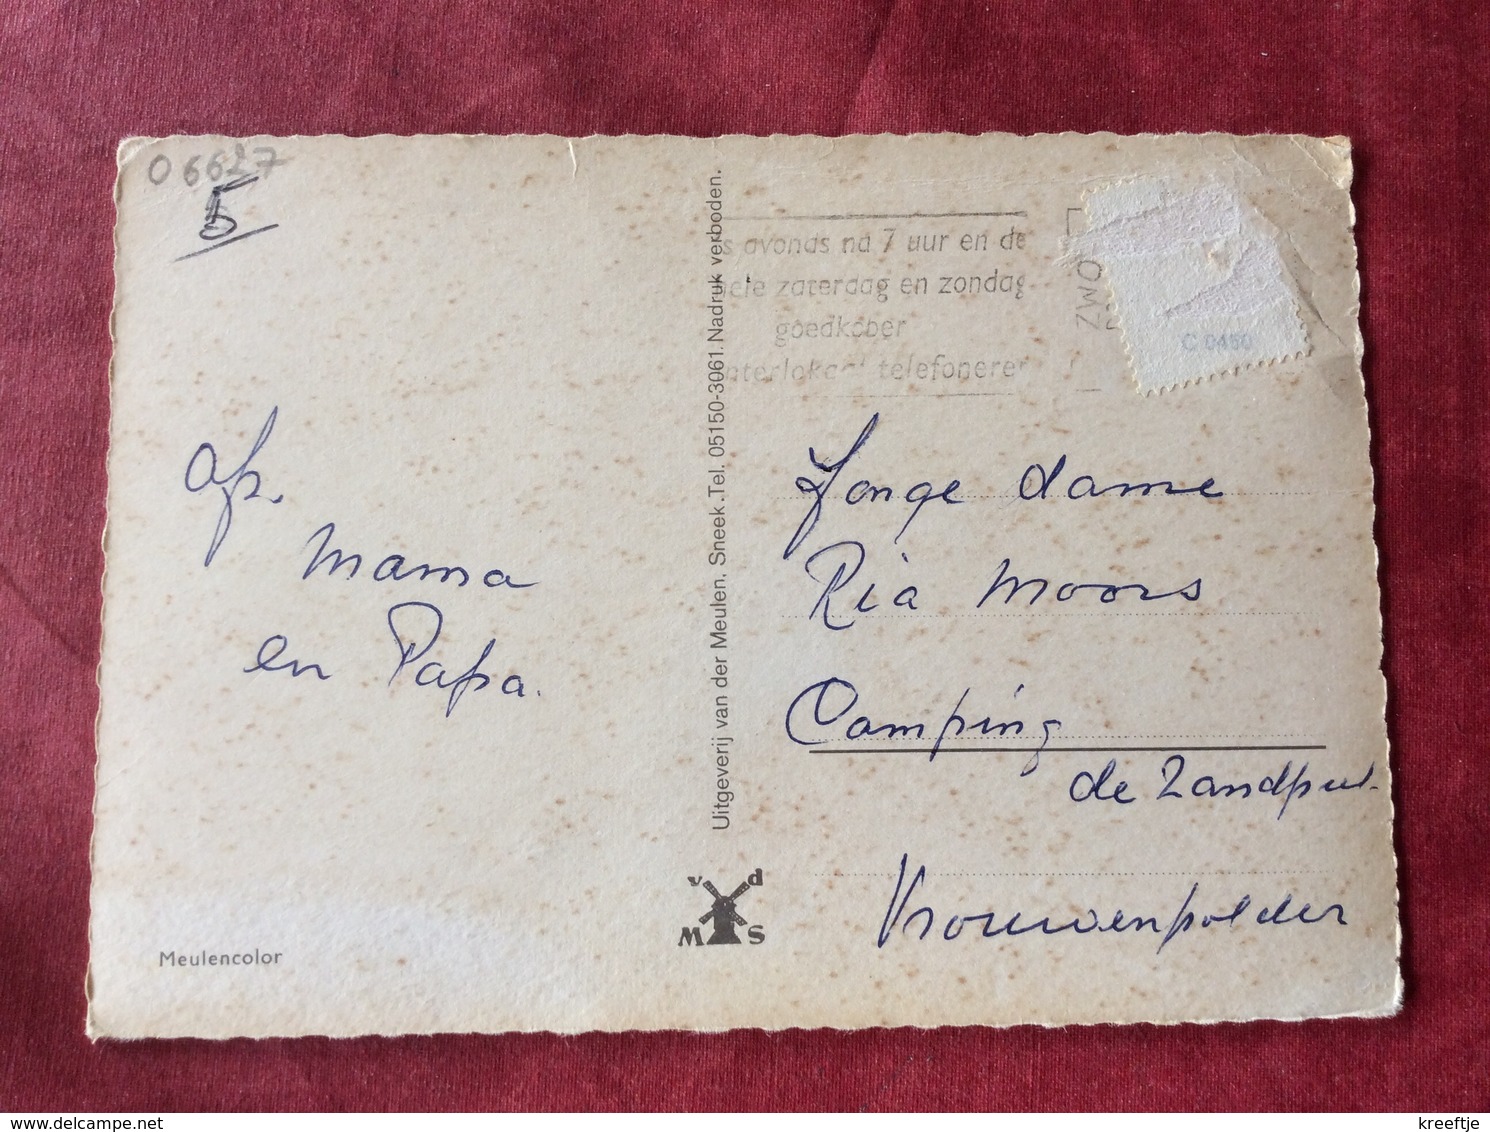 06627
5
avonds na 7 uur en de
zaterdag en zondag
goedkoper
telefoneren
ZWO
C 0450
Uitgeverij van der Meulen, Sneek. Tel. 05150-3061. Nadruk verboden.
afz.
Mama
en Papa.
Jonge dame
Ria Moors
Camping
de Zandput.
Vrouwenpolder
v d
M S
Meulencolor
kreeftje